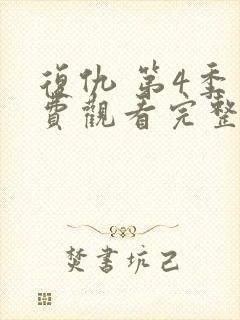 復仇 第4季
費觀看完整
焚書坑己